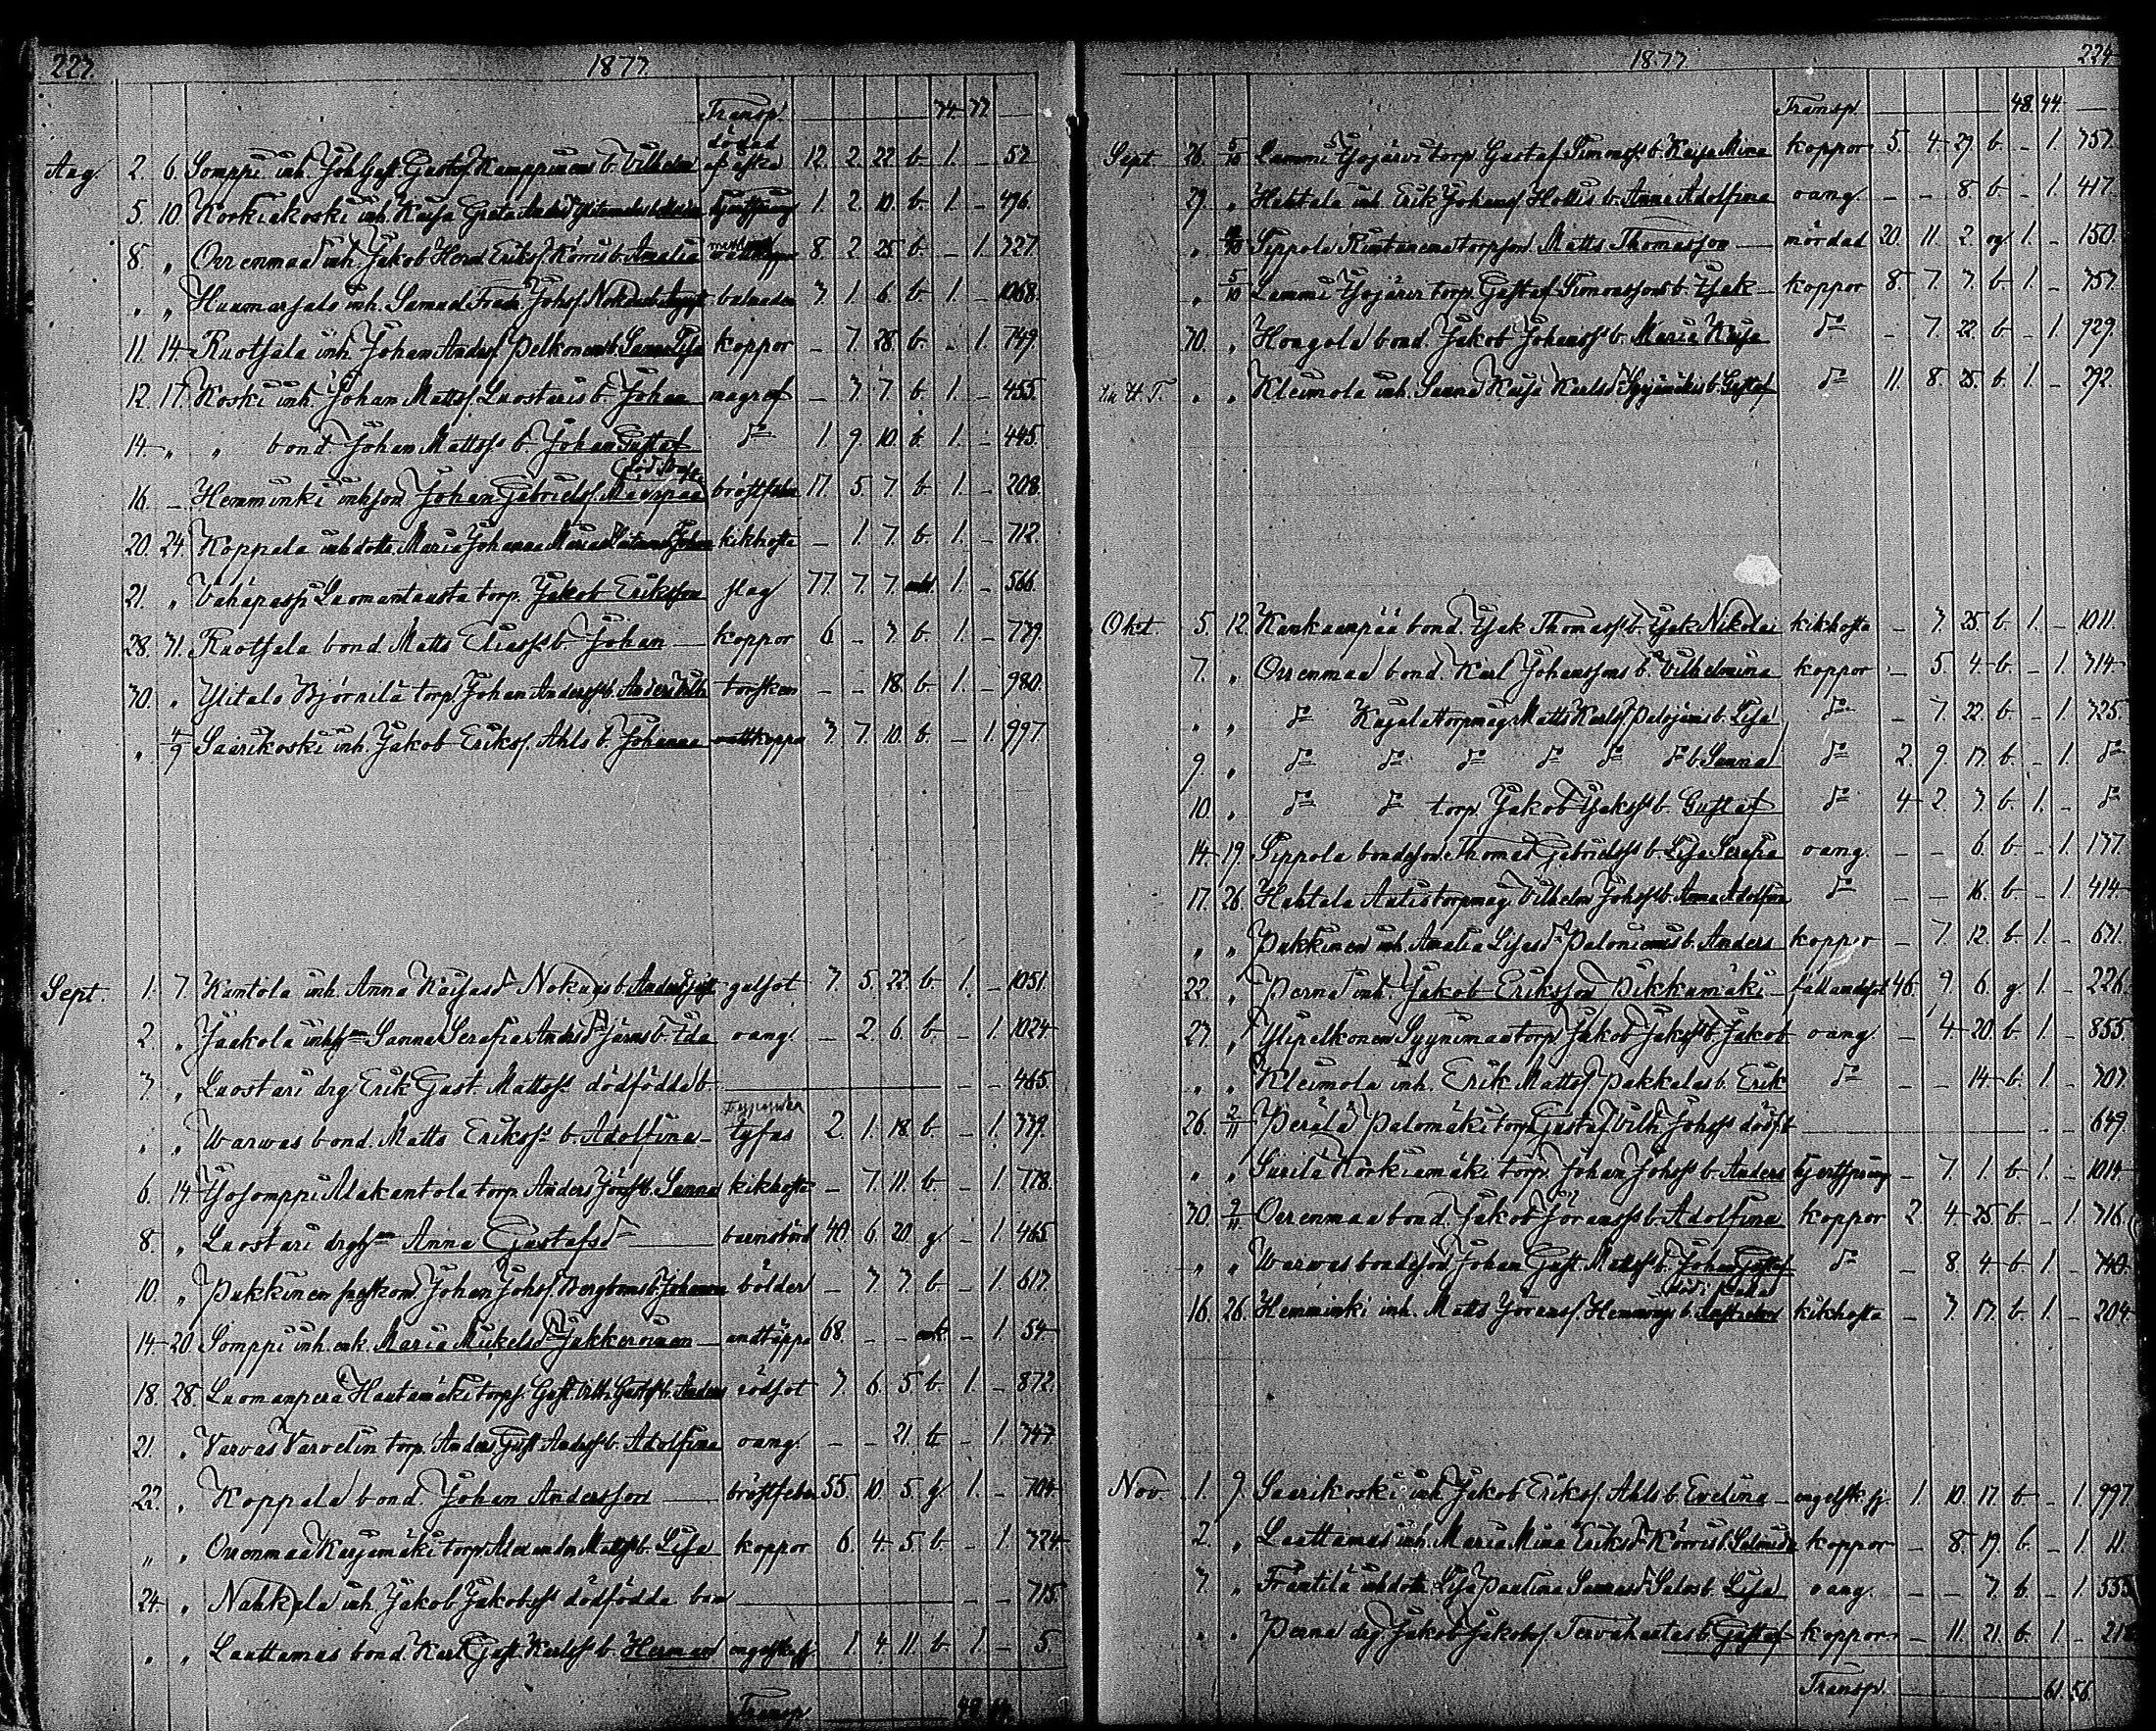 223. 1877.
Transp. 34. 33.
Aug. 2. 6. Somppi inh. Joh Gust Gustafs. Kamppinens b. Vilhelm dödad af åska 12. 2. 22 b. 1. – 57
5. 10. Korkiakoski inh. Kaisa Greta 1. 2. 10. b. 1. – 496.
8. " Orrenmaa inh. Jakob Herm Eriks. Körris b. Amalia 8 2 25 b. – 1. 327.
" " Haumarsalo inh. Samuel 3 1. 6. b 1. – 1068.
11. 14 Ruotsala inh. Johan Anders. Pelkonens b. Sanna Lisa koppor – 7. 28. b. – 1. 749.
12. 17. Koski inh. Johan Matts. Luostaris b. Johan magref – 3. 7. b. 1. – 455.
14. " " bond. Johan Mattss. b. Johan Gustaf do 1. 9. 10. b. 1. – 445.
16. – Hemminki inhson Johan Gabriels. bröstfeber 17. 5. 7. b. 1. – 208.
20. 24. Koppala inhdottr. Maria Johanna kikhosta – 1. 7. b. 1. – 712.
21. " Vähäpassi Luomantausta torp. Jakob Eriksson slag 77. 7. 7. enkl. 1. – 566.
28. 31. Ruotsala bond. Matts Eliass. b. Johan koppor 6 – 3 b. 1. – 739.
30. " Ylitalo Björnilä torp. Johan Anderss. b. Anders Vilh torsken – – 18. b. 1. – 980.
" 4/9 Saarikoski inh. Jakob Eriks. Ahls b. Johanna vattkoppor 3. 7. 10. b. – 1. 997.
Sept. 1. 7. Kantola inh. Anna Kaisasdr Nokuas b. Anders Gust gulsot 7. 5. 22. b. 1. – 1051.
2. " Jaakola inhhn Sanna Serafia Andersdr Järns b. Ida oang. – 2. 6. b. – 1. 1024.
3. " Luostari drg. Erik Gust. Mattss. dödfödda b. – – 465.
" " Warwas bond. Matts Erikss. b. Adolfina tyfus 2. 1. 18. b. – 1. 339.
6. 14. Yosomppi Alakantola torp. Anders Jörs. b. Sanna kikhosta – 7. 11. b. – 1. 778.
8. " Luostari drghn Anna Gustafsdr barnsbörd 40 6. 20. g. – 1. 465.
10. " Pukkinen Johan Johs. Bergboms b. Johanna bölder – 7. 7. b. – 1. 617.
14 20. Somppi inh. enk. Maria Mickelsdr Jukkernainen andtäppa 68. – – enk. – 1. 54
18. 28. Luomanperä Hautamäki torps. Gust. Vilh. Gustafs. b. Anders rödsot 7. 6. 5. b. 1. – 872.
21. " Varvas Varvelin torp. Anders Gust. Anderss. b. Adolfina oang. – – 21. b. – 1. 347.
22. " Koppala bond. Johan Andersson bröstfeber 55. 10. 5. g. 1. – 704
" " Orrenmaa Karjamäki torp. Alexander Matts. b. Lisa koppor 6. 4. 5. b. – 1. 324
24. " Nahkala inh. Jakob Jakobss. dödfödda barn – – 715.
" " Luuttamus bond. Karl Gust. Karlss. b. Herman engelska sj. 1. 4. 11. b. 1. – 5.
Transp. 48. 44.
1877. 224.
Transp. 48. 44.
Sept. 26. 5/10 Lammi Yojärvi torp. Gustaf Simonss. b. Kaisa Mina koppor 5. 4. 27. b. – 1. 757.
29. " Hahtala inh. Erik Johans. Hollis b. Anna Adolfina oang. – – 8. b. – 1. 417.
" Sippola Rintanena torpson Matts Thomasson mördad 20. 11. 2. og. 1. – 150.
" 5/10 Lammi Yojärvi torp. Gustaf Simonssons b. Isak koppor 8. 7. 7. b. 1. – 757.
30. " Hongola bond. Jakob Johanss. b. Maria Kaisa do – 7. 22. b. – 1. 929.
" " Kleimola inh. Sanna Kaisa Karlsdr Syynimäkis b. Gustaf do 11. 8. 25. b. 1. – 292.
Okt. 5. 12. Kankaanpää bond. Isak Thomass. b. Isak Nikolai kikhosta – 3. 25. b. 1. – 1011.
7. " Orrenmaa bond. Karl Johanssons b. Vilhelmina koppor – 5. 4. b. – 1. 314
" " do Kujala torpmåg Matts Karls. Palojärvis b. Lisa do – 7. 22. b. – 1. 325.
9. " do do do do do do b. Sanna do 2. 9. 17. b. – 1. do
10. " do do torp. Jakob Isakss. b. Gustaf do 4 2. 3. b. 1. – do
14 19. Sippola bondeson Thomas Gabrielss. b. Lisa Serafia oang. – – 6. b. – 1. 137.
17. 26. Hahtala Autistorpmåg Vilhelm Johss. b. Anna Adolfina do – – 16. b. – 1. 414
" " Pukkinen inh. Amalia Lisasdr Paloniemis b. Anders koppor – 7. 12. b. 1. – 631.
22. " Perna inh. Jakob Eriksson Pikkumäki fallandesot 46. 9. 6. g. 1. – 226.
23. " Ylipelkonen Syynimaa torp. Jakob Jakobss. b. Jakob oang. – 4. 20. b. 1. – 855.
" " Kleimola inh. Erik Matts. Pakkalas b. Erik do – – 14. b. 1. – 307.
26. 2/11 Perälä Palomäki torp. Gustaf Vilh. Johss. dödf. b. – – 649
" " Surila Korkiamäki torp. Johan Johss. b. Anders hjertsprång – 7. 1. b. 1. – 1014
30. 9/11 Orrenmaa bond. Jakob Jöranss. b. Adolfina koppor 2 4 25. b. – 1. 316.
" " Warwas bondeson Johan Gust. Matss. b. Johan Gustaf do – 8. 4. b. 1. – 340.
16. 26. Hemminki inh. Matts Jörans. Hemmings b. kikhosta – 3. 17. b. 1. – 204.
Nov. 1. 9. Saarikoski inh. Jakob Eriks. Ahls b. Evelina engelsk. sj. 1. 10. 17. b. – 1. 997.
2. " Luuttamus inh. Maria Mina Eriksdr Körris b. Salmida koppor – 8. 19. b. – 1. 11.
3. " Franttila inhdottr. Lisa Paulina Sannasdr Salos b. Lisa oang. – – 7. b. – 1. 555.
" " Perna drg. Jakob Jakobs. Tervahautas b. Gustaf koppor – 11. 21. b. 1. –
Transp. 61. 56.